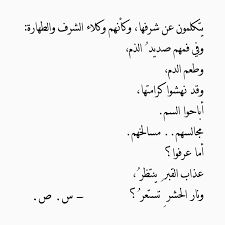 يتكلمون عن شرفها، وكأنهم وكلاء الشرف والطهارة:
وفي فمهم صديدُ الذم،
وطعم الدم،
وقد نهشوا كرامتها،
أباحوا السم.
مجالسهم.. مسالخهم.
أما عرفوا؟
عذاب القبرِ ينتظرُ،
ونار الحشرِ تستعرُ؟ – س. ص.